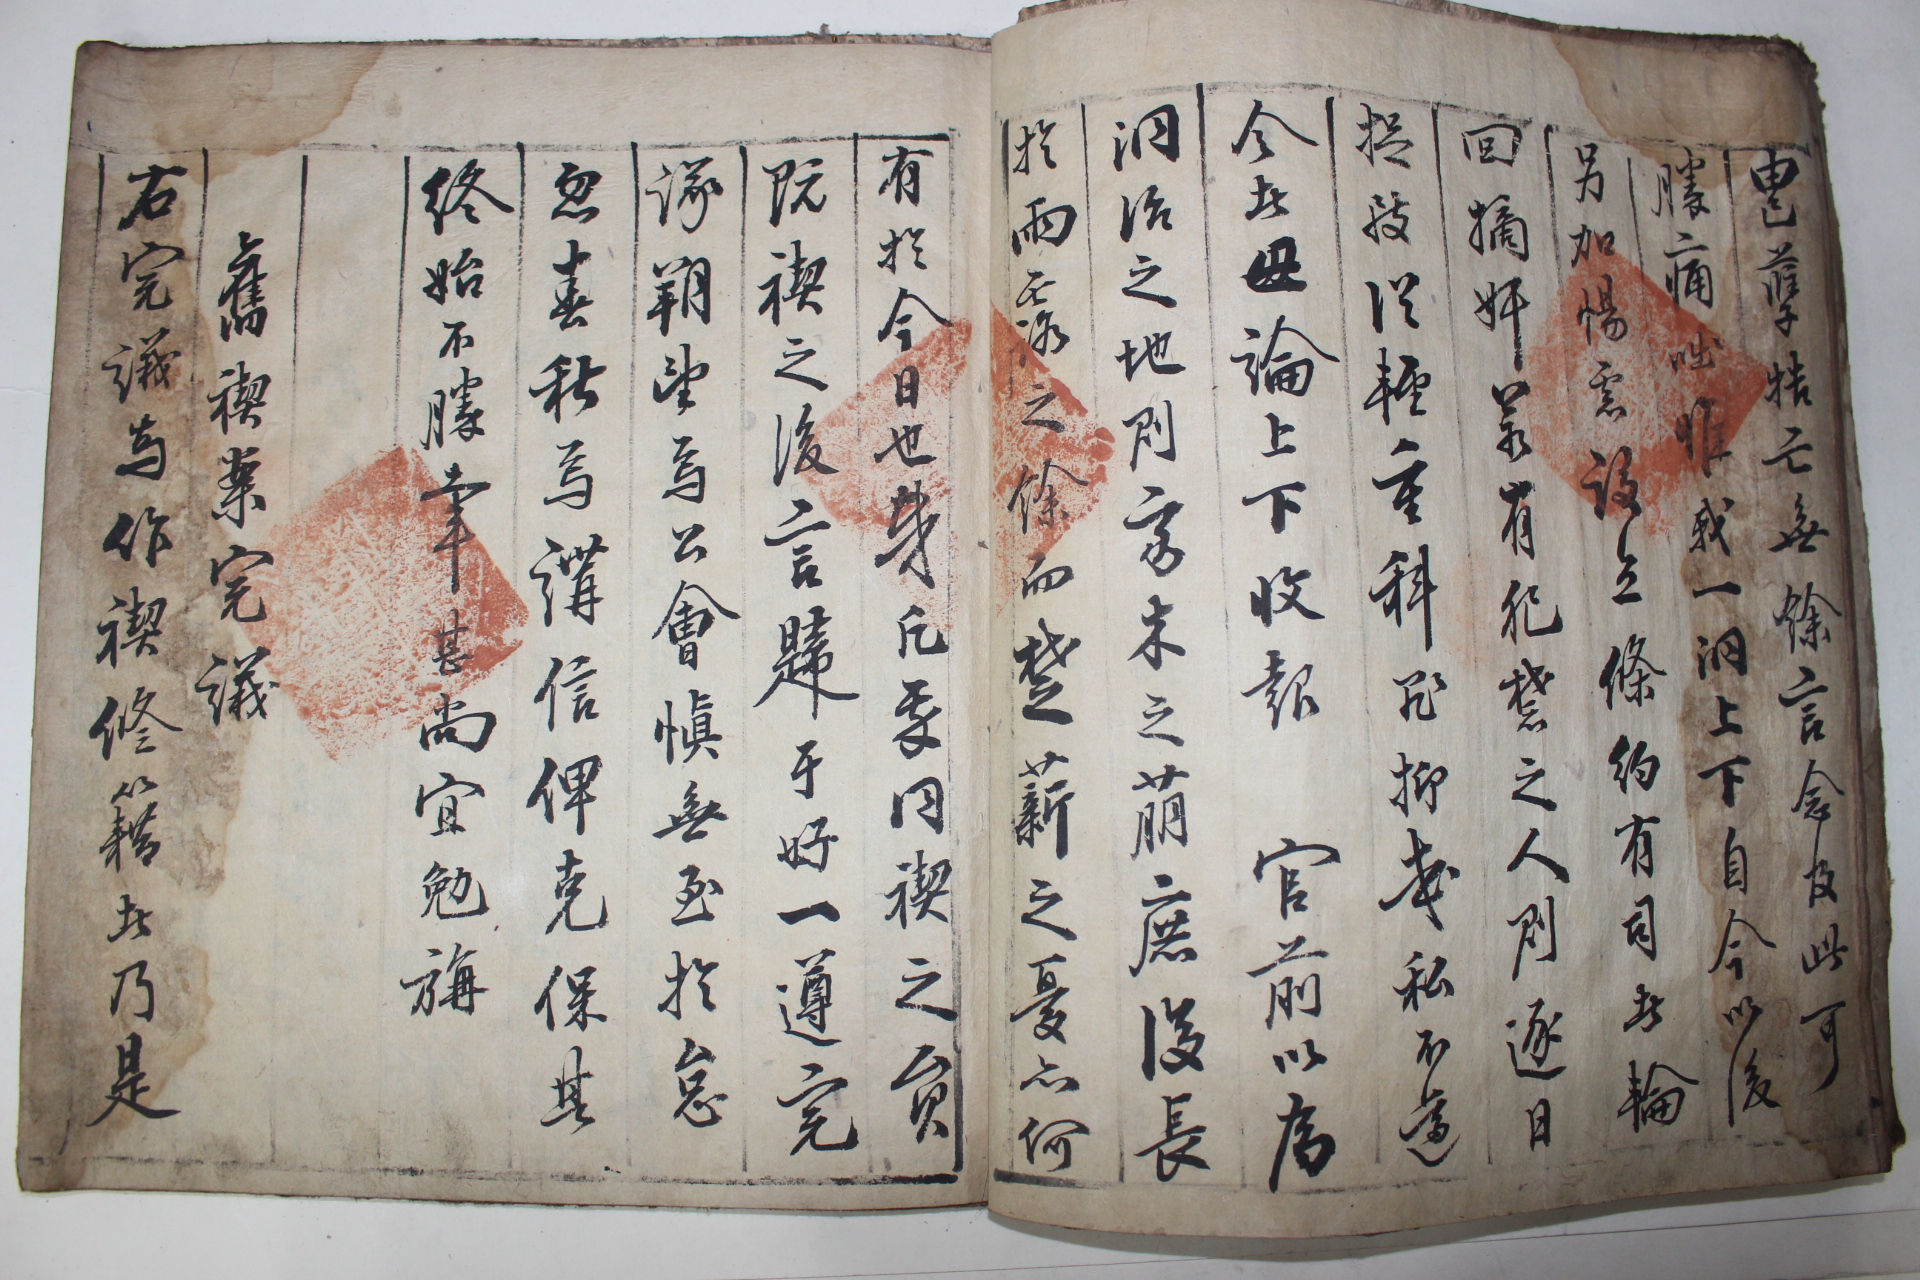 孽牿亡無餘言念及此可
勝痛咄惟我一洞上下自今以後
另加惕慮設立條約有司此輪
回摘奸是遣有犯禁之人則逐日
捉致從輕重科罪抑或私不
今此毋論上下收報 官前以爲
洞治之地則寧末之萌庶後長
於雨露之餘而楚薪之憂亦何
有於今日也哉凡吾同禊之員
既禊之後言歸于好一遵完
議朔望焉公會愼無至於怠
忽春秋焉講信俾克保其
終始不勝幸甚尚宜勉旃
舊禊案完議
右完議為作禊修籍此乃是